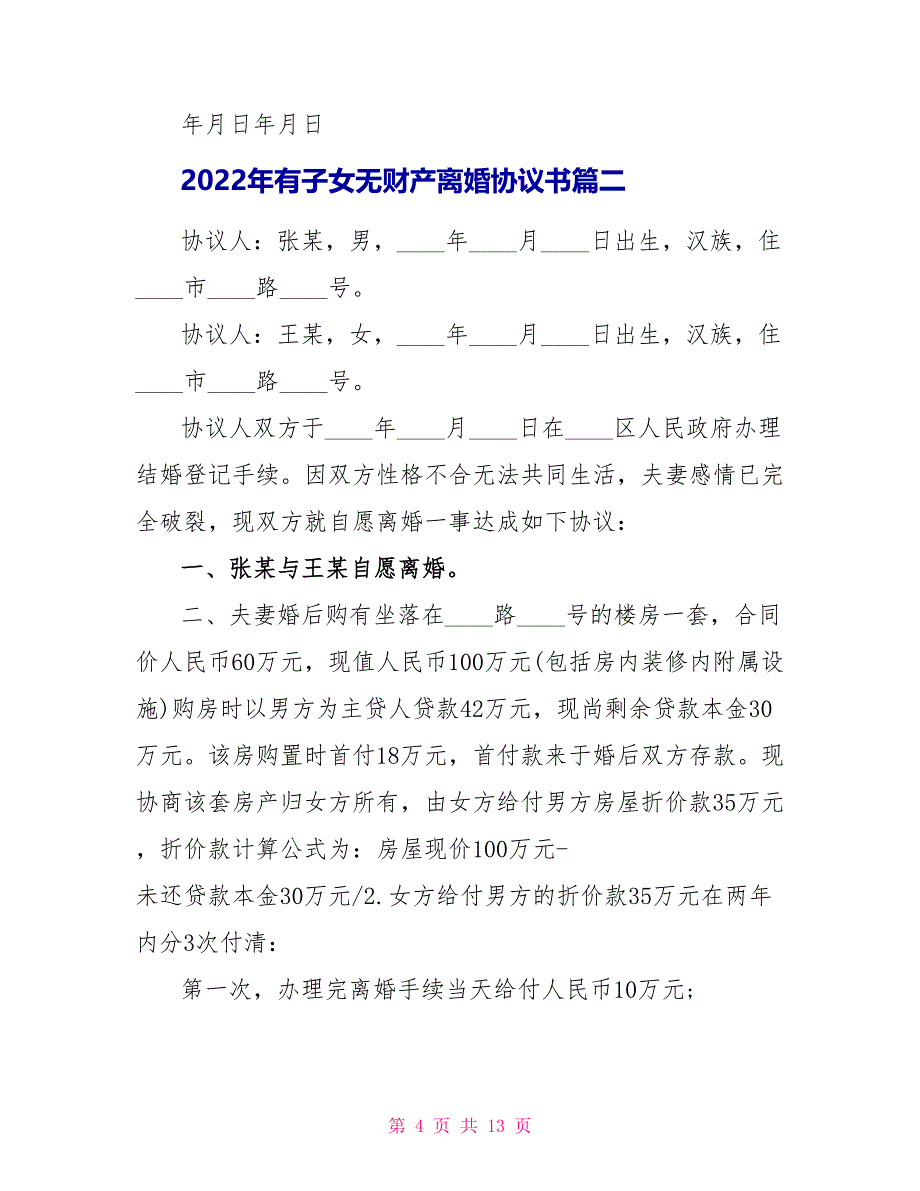 年月日年月日
2022年有子女无财产离婚协议书篇二
协议人：张某，男，____年____月____日出生，汉族，住
____市____路____号。
协议人：王某，女，____年____月____日出生，汉族，住
____市____路____号。
协议人双方于____年____月____日在____区人民政府办理
结婚登记手续。因双方性格不合无法共同生活，夫妻感情已完
全破裂，现双方就自愿离婚一事达成如下协议：
一、张某与王某自愿离婚。
二、夫妻婚后购有坐落在____路____号的楼房一套，合同
价人民币60万元，现值人民币100万元(包括房内装修内附属设
施)购房时以男方为主贷人贷款42万元，现尚剩余贷款本金30
万元。该房购置时首付18万元，首付款来于婚后双方存款。现
协商该套房产归女方所有，由女方给付男方房屋折价款35万元
，折价款计算公式为：房屋现价100万元-
未还贷款本金30万元/2.女方给付男方的折价款35万元在两年
内分3次付清：
第一次，办理完离婚手续当天给付人民币10万元;
第 4 页 共 13 页